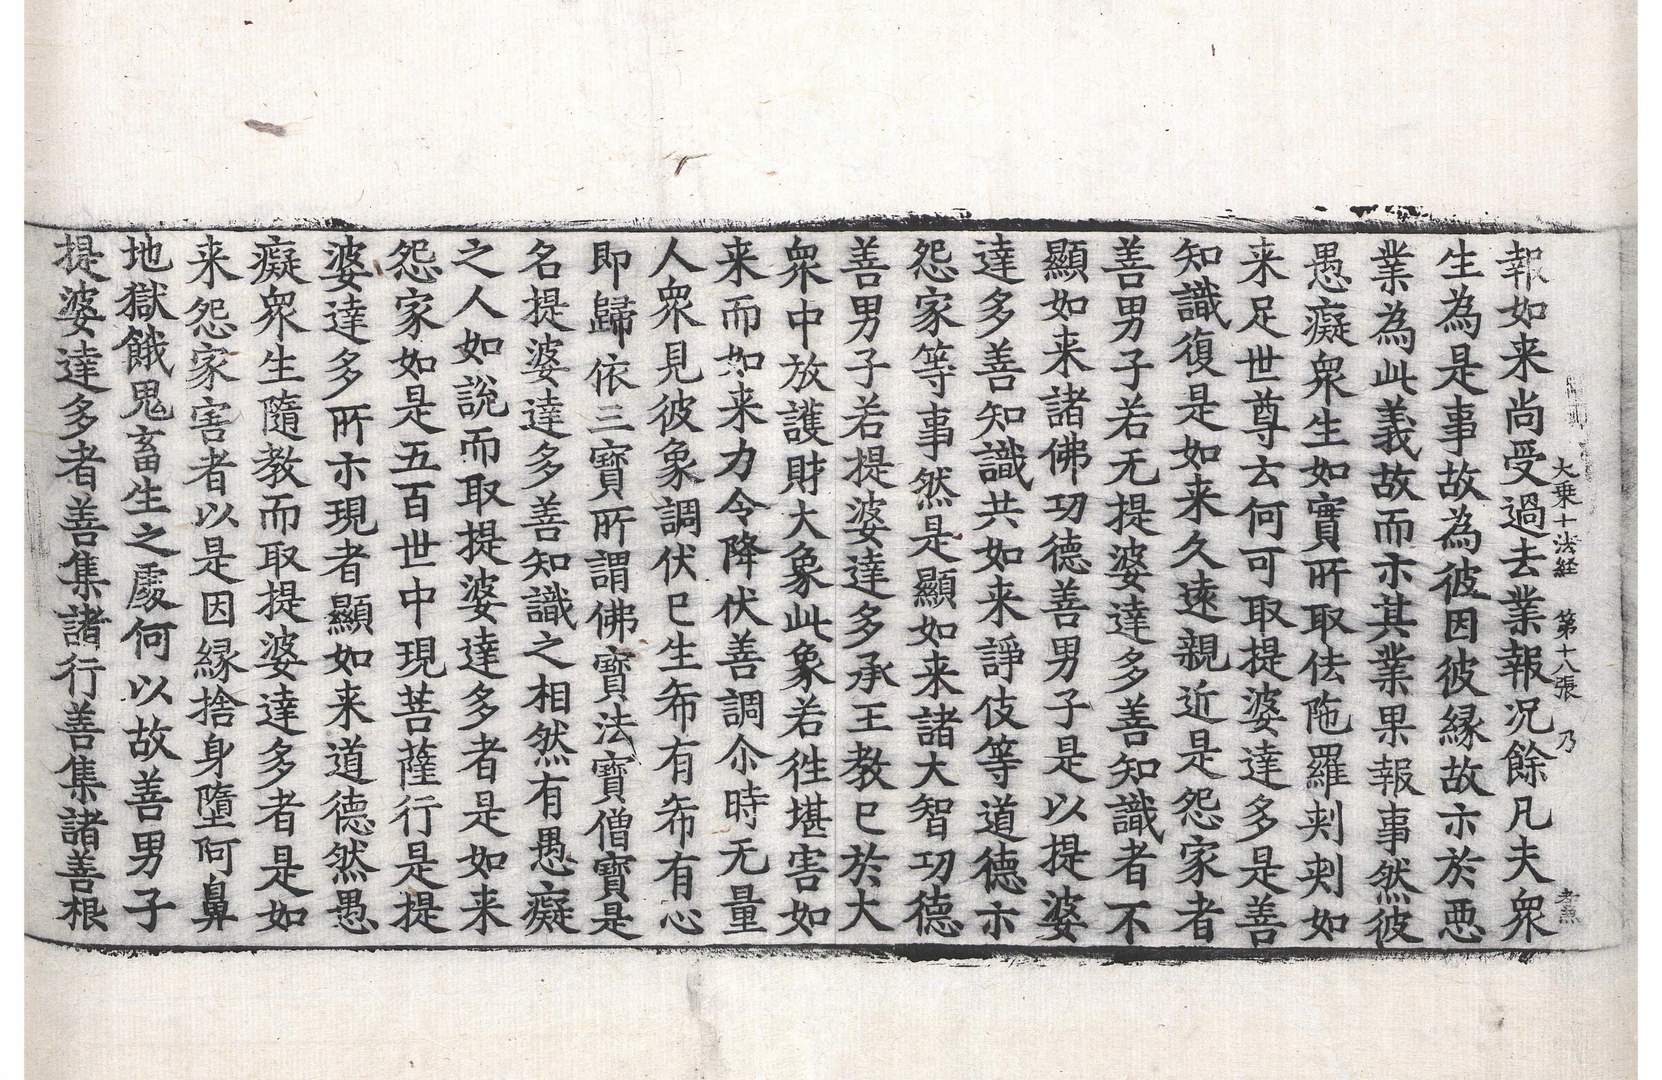 大乗十法経　第十八張　乃
報如来尚受過去業報况餘凡夫衆
生為是事故為彼因彼縁故示於悪
業為此義故而示其業果報事然彼
愚癡衆生如實所取佉陁羅刾刾如
来足世尊云何可取提婆達多是善
知識復是如来久遠親近是怨家者
善男子若无提婆達多善知識者不
顯如来諸佛功德善男子是以提婆
達多善知識共如来諍伎等道德示
怨家等事然是顯如来諸大智功德
善男子若提婆達多承王教已於大
衆中放護財大象此象若徃堪害如
来而如来力令降伏善調尒時无量
人衆見彼象調伏已生希有希有心
即歸依三寶所謂佛寶法寶僧寶是
名提婆達多善知識之相然有愚癡
之人如說而取提婆達多者是如来
怨家如是五百世中現菩薩行是提
婆達多所示現者顯如来道德然愚
癡衆生隨教而取提婆達多者是如
来怨家害者以是因縁捨身墮阿鼻
地獄餓鬼畜生之處何以故善男子
提婆達多者善集諸行善集諸善根